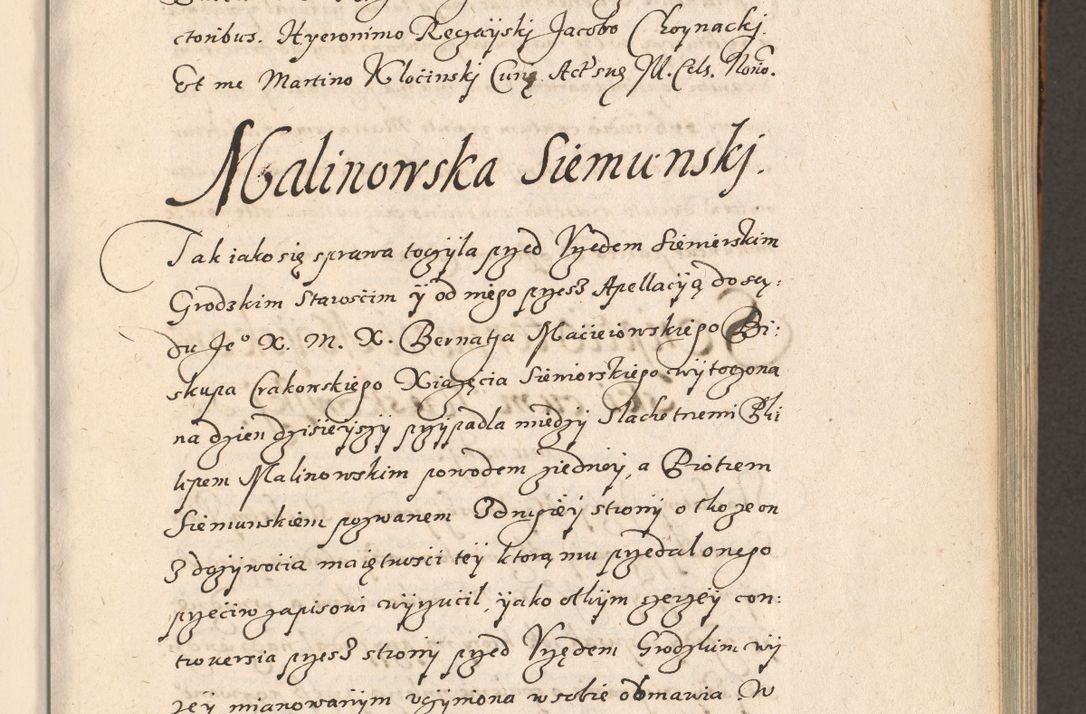 ctoribus. Hyeronimo Ręgayskj Jacobo Choynackj.
Et me Martino Kłocinskj Curę Act. suę Ill. Cels. Noĩo.
Malinowska Siemunskj.
Tak iako się sprawa toczyła przed Vrzędem Siewierskim
Grodzkim Starosćim ÿ od niego przes Apellacÿą do sę:
du Jeº X. M. X. Bernatha Maćieiowskiego Bi:
skupa Crakowskiego Xiążęcia Siewiorskiego wÿtoczona
na dzien dzisieÿszÿ przÿpadla miedzÿ Slachetnemi Phi
lipem Malinowskim powodem ziedneÿ, a Piotrem
Siemunskiem pozwanem Zdrugieÿ stronÿ o tho ze on
Z dozÿwocia maiętnosci teÿ ktorą mu przedal onego
przećiw zapisowi wÿrzucil, ÿako othÿm szerzeÿ con:
trouersia przes stronÿ przed Vrzędem Grodzkim wÿ
zeÿ mianowanÿm vczÿniona w sobie obmawia. W